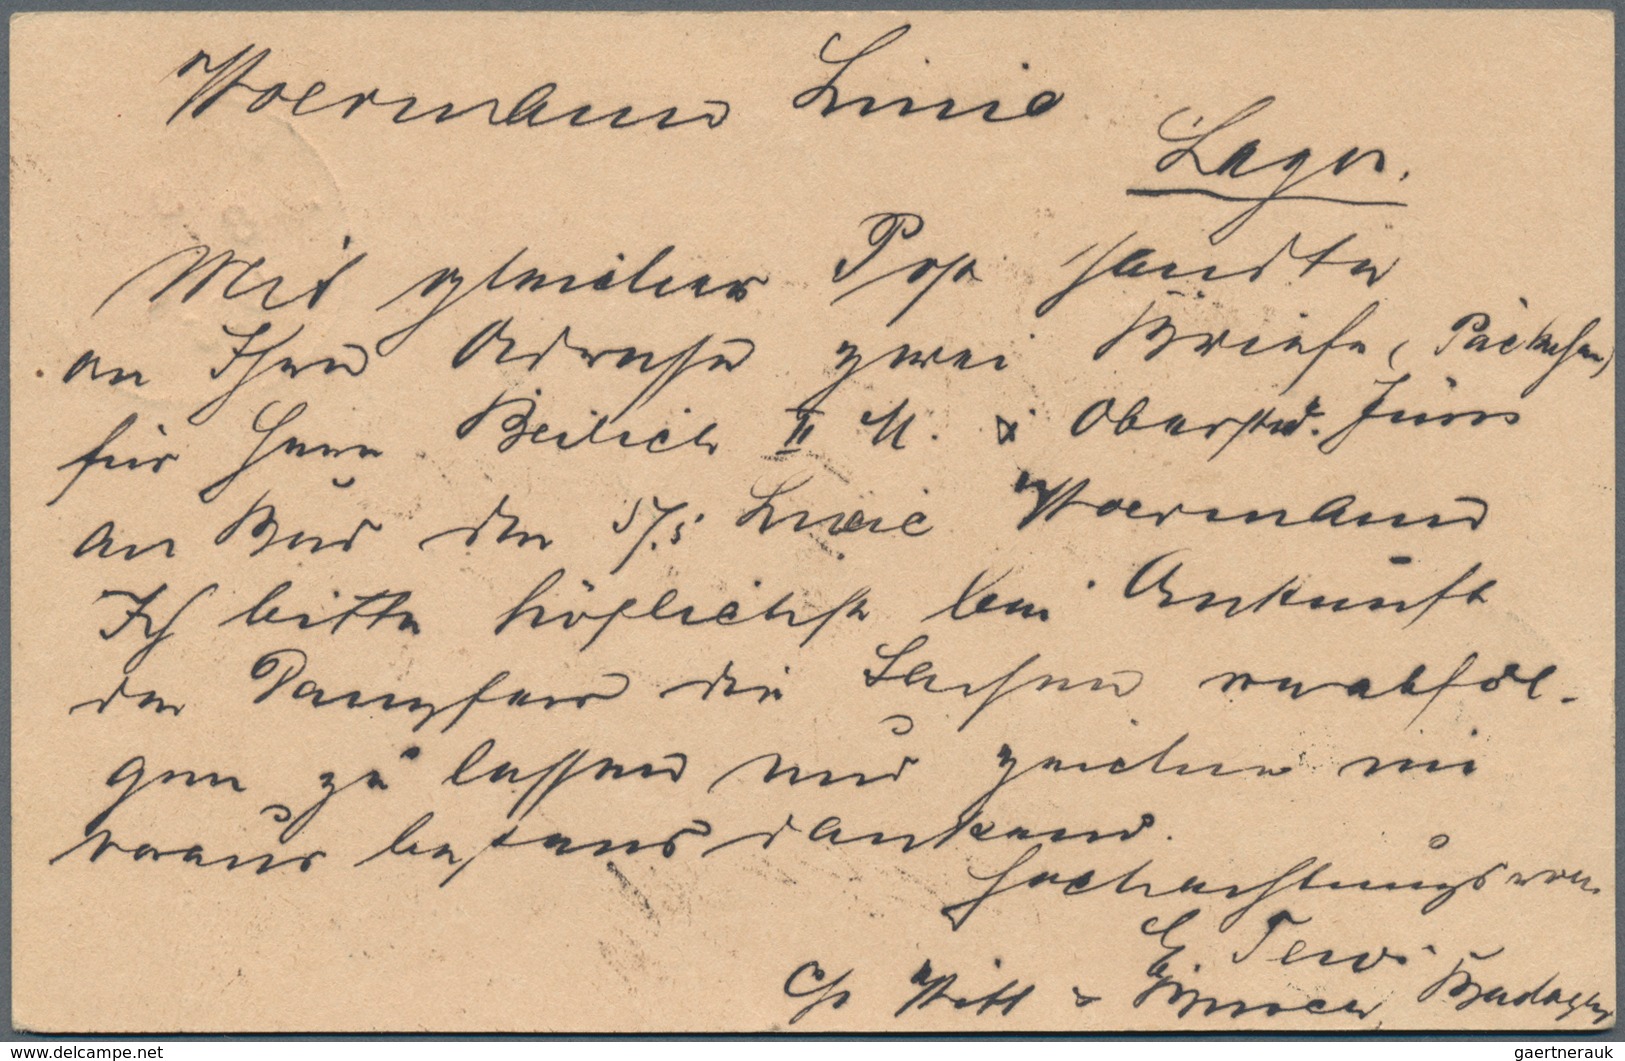 Woermann Linie
Lagos.
Mit gleicher Post sandte
an Ihre Adresse zwei Briefe (Päckchen)
für Herrn II M. & Oberstew. Jürs
an Bord der Linie Woermann
Ich bitte höflichst bei Ankunft
der Dampfer die Sachen verabfol-
gen zu lassen und zeichne im
voraus bestens dankend.
Hochachtungsvoll
E.
c/o Witt & Badagry
gaertnerauk